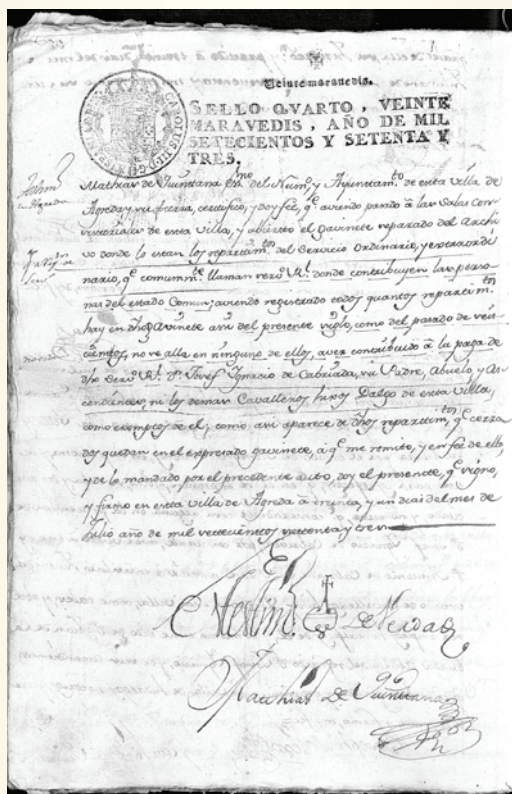 Veinte maravedis.
SELLO QVARTO, VEINTE
MARAVEDIS, AÑO DE MIL
SETECIENTOS Y SETENTA Y
TRES.
Mathias de Quintana es.no del Num.o y Ayuntam.to de esta villa de
Agreda y su tierra, certifico, y doy fee, q.e aviendo pasado a las Salas Con
sistoriales de esta villa, y abierto el gavinete reparado del Archi
vo donde lo estan los repartim.tos del Servicio Ordinario, y extraordi
nario, q.e comunm.te llaman serv.o R.l donde contribuyen las perso
nas del estado Comun; aviendo registrado todos quantos repartim.tos
hay en dho Gavinete asi del presente siglo, como del pasado de seis
cientos, no se alla en ninguno de ellos, aver contribuido a la paga de
dho Serv.o R.l d.n Josef Ignacio de Cabriada, su Padre, Abuelo, y As
cendientes, ni los demas Cavalleros hijos Dalgo de esta villa,
como exemptos de el; como asi aparece de dhos repartim.tos q.e cerra
dos quedan en el expresado gavinete, a q.e me remito, y en fee de ello,
y de lo mandado por el precedente auto, doy el presente, q.e signo,
y firmo en esta villa de Agreda a treinta, y un dias del mes de
Julio año de mil setecientos y setenta y tres
En
testim.o de Verdad
Mathias de Quintana